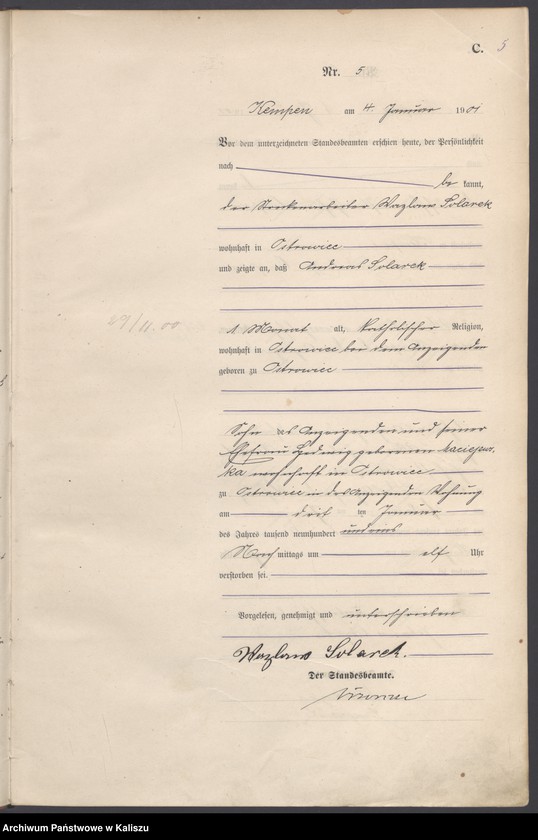 C. 5
Nr. 5
Kempen am 4. Januar 1901
Vor dem unterzeichneten Standesbeamten erschien heute, der Persönlichkeit
nach
be kannt,
der Streckenarbeiter Wazlaw Solarek
wohnhaft in Ostrowiec
und zeigte an, daß Andreas Solarek
29/11.00
1 Monat alt, katholischer Religion,
wohnhaft in Ostrowiec bei dem Anzeigenden
geboren zu Ostrowiec
Sohn des Anzeigenden und seiner
Ehefrau Hedwig geborenen
ka wohnhaft in Ostrowiec
zu Ostrowiec in des Anzeigenden Wohnung
am drit ten Januar
des Jahres tausend neunhundert und eins
Nach mittags um elf Uhr
verstorben sei.
Vorgelesen, genehmigt und unterschrieben
Wazlaw Solarek.
Der Standesbeamte.
Archiwum Państwowe w Kaliszu